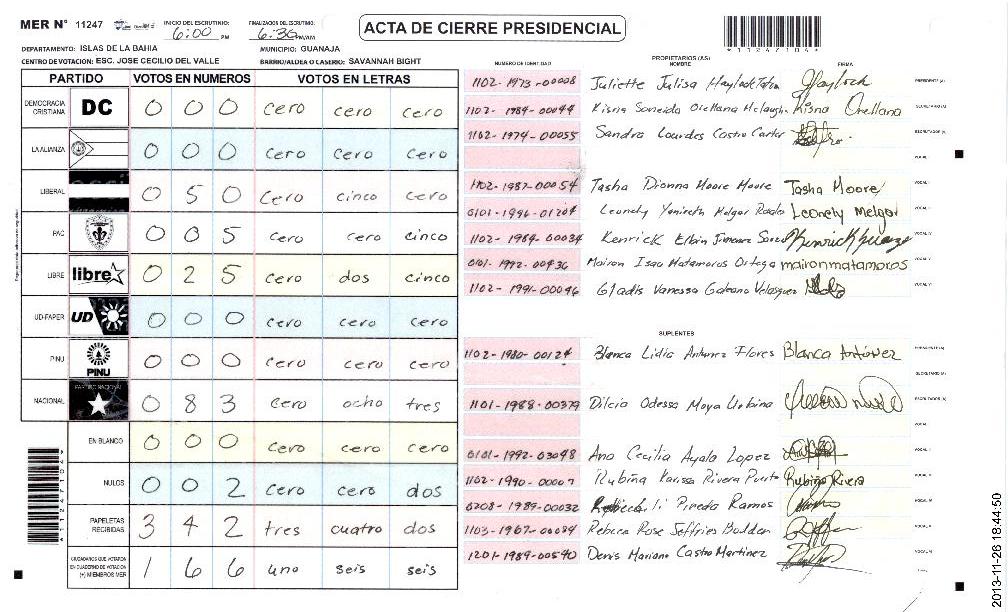 MER N° 11247
INICIO DEL ESCRUTINIO: 6:00 PM
FINALIZACION DEL ESCRUTINIO: 6:30 PM/AM
ACTA DE CIERRE PRESIDENCIAL
*11247104*
DEPARTAMENTO: ISLAS DE LA BAHIA
MUNICIPIO: GUANAJA
CENTRO DE VOTACION: ESC. JOSE CECILIO DEL VALLE
BARRIO/ALDEA O CASERIO: SAVANNAH BIGHT
PARTIDO VOTOS EN NUMEROS VOTOS EN LETRAS
DEMOCRACIA CRISTIANA DC 0 0 0 cero cero cero
LA ALIANZA 0 0 0 cero cero cero
LIBERAL 0 5 0 cero cinco cero
PAC 0 0 5 cero cero cinco
LIBRE libre 0 2 5 cero dos cinco
UD-FAPER UD 0 0 0 cero cero cero
PINU PINU 0 0 0 cero cero cero
NACIONAL PARTIDO NACIONAL 0 8 3 cero ocho tres
EN BLANCO 0 0 0 cero cero cero
NULOS 0 0 2 cero cero dos
PAPELETAS RECIBIDAS 3 4 2 tres cuatro dos
CIUDADANOS QUE VOTARON EN CUADERNO DE VOTACION (+) MIEMBROS MER 1 6 6 uno seis seis
NUMERO DE IDENTIDAD
PROPIETARIOS (AS)
NOMBRE
FIRMA
1102-1973-00008 Juliette Julisa Haylock Haylock PRESIDENTE (A)
1102-1984-00044 Kisna Soneida Orellana Kisna Orellana SECRETARIO (A)
1102-1974-00055 Sandra Lourdes Castro Carter ESCRUTADOR (A)
VOCAL
1102-1987-00054 Tasha Dionna Moore Moore Tasha Moore
0101-1996-01204 Leonely Yanireth Melgar Leonely Melgar
1102-1989-00034 Kenrick Elbin Jimenez
0101-1992-00936 Mairon Isau Matamoros Ortega mairon matamoros
1102-1991-00046 Gladis Vanessa Galeano Velasquez
SUPLENTES
1102-1980-00124 Blanca Lidia Antunez Flores Blanca Antúnez PRESIDENTE (A)
SECRETARIO (A)
1101-1988-00379 Dilcia Odessa Moya Urbina ESCRUTADOR (A)
VOCAL
0101-1992-03098 Ana Cecilia Ayala Lopez
1102-1990-00007 Rubiña Karissa Rivera Rubiña Rivera
0208-1989-00032 Pineda Ramos
1103-1967-00084 Rebeca Rose Jeffries Bodden
1201-1989-00540 Denis Mariano Castro Martinez
*11247104*
2013-11-26 18:44:50